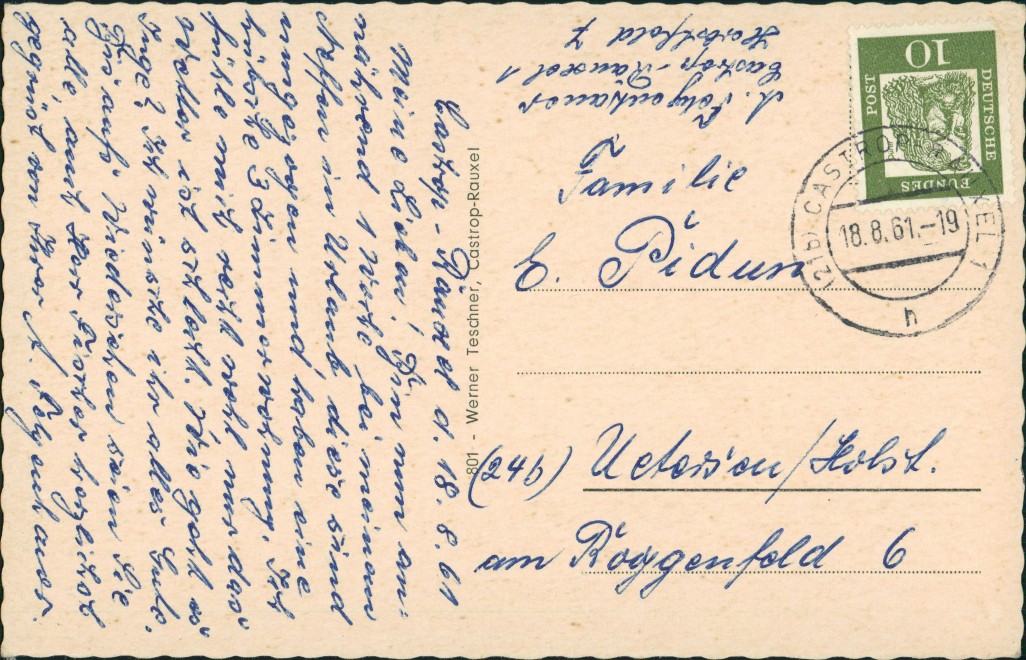 Castrop-Rauxel d. 18. 8. 61
Meine Lieben! Bin nun an-
nähernd 1 Woche bei meinem
in Urlaub, diese sind
umgezogen und haben eine
hübsche 3 Zimmerwohnung. Ich
fühle mich recht wohl nur das
Wetter ist schlecht. Wie geht es
Inge? Ich wünsche ihr alles Gute.
Bis aufs Wiedersehen seien Sie
alle, auch Herr herzlichst
gegrüßt von Ihrer
801 - Werner Teschner, Castrop-Rauxel
Castrop-Rauxel 1
7
Familie
E. Pidun
(24b) Uetersen/Holst.
am Roggenfeld 6
10
DEUTSCHE
BUNDES
POST
(21b) CASTROP-RAUXEL 1
18.8.61.-19
h